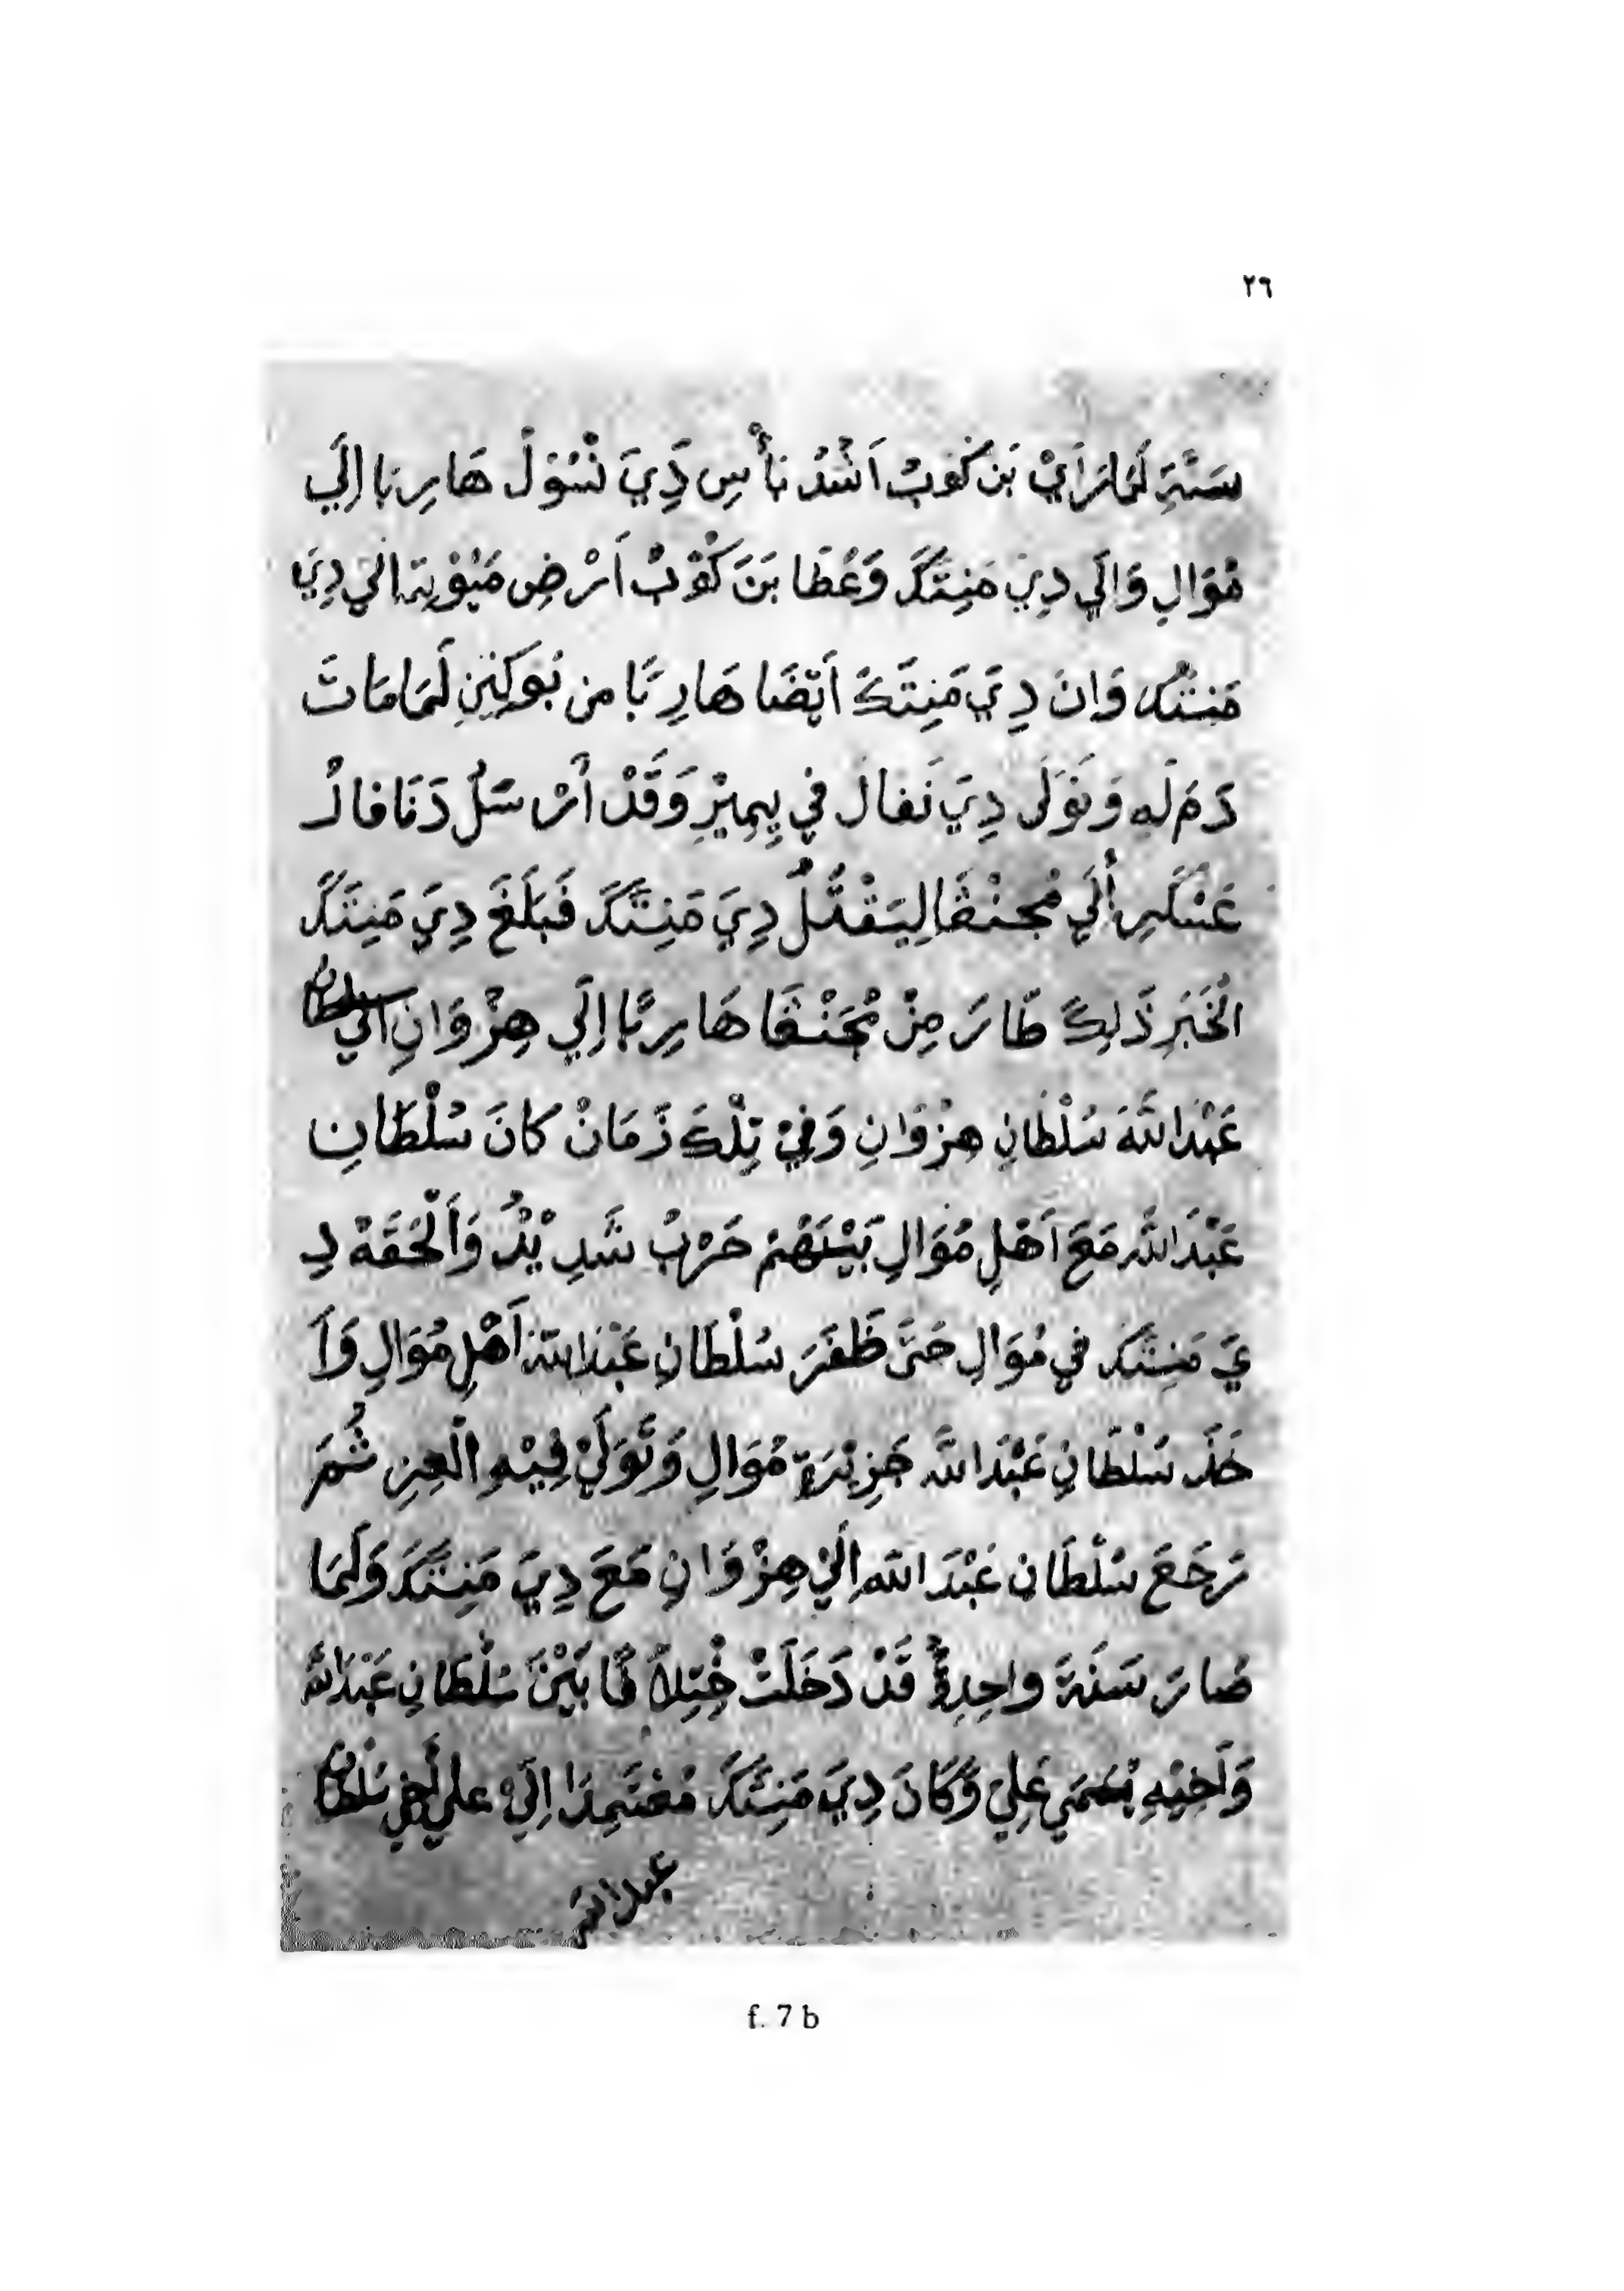 ٢٦
سَنَةِ لَمَا رَاَيْ بَن كُوبُ اَشَدُ نَأْسِ دِيَ نُسُوْلَ هَارِبَا اِلَي
مُوَالِ وَالَي دِيَ مَنِتَكَ وَعْطَا بَنَ كُوْبْ اَرْضِ مَيُوْتِه الَي دِيَ
مَنِتَكَ وَانَ دِيَ مَنِتَكَ اَيْضَا هَارِبًا من بُوكِنِنِ لَمَا مَاتَ
وَتَوَلَى دِيَ نَفَالَ في يِمِيْزِ وَقَدْ اُرْسَلُ دَنَافَالُ
عَسْكَرِ اُلَي مُجَنْقَا لِيَقْتُلُ دِيَ مَنِتَكَ فَبَلَغَ دِيَ مَنِتَكَ
الْخَبَرِ ذَلِكَ طَارَ مِنْ مُجَنْقَا هَارِبًا اِلَي هِزْوَانِ الَي سلطان
عَبْدَ اللَّه سُلْطَانِ هِزْوَانِ وَفِيْ تِلْكَ زَمَانْ كَانَ سُلْطَانِ
عَبْدَ اللَّه مَعَ اَهْلِ مُوَالِ بَيْنَهُمْ حَرْبُ شَدِيْدُ وَاَلْحَقَهْ دِ
يَ مَنِتَكَ فِي مُوَالِ حَتَى ظَفَرَ سُلْطَانِ عَبْدَ اللَّه اَهْلِ مُوَالِ وَاَ
خَذَ سُلْطَانِ عَبْدَ اللَّه جَزِيْرَةِ مُوَالِ وَتَوَلَيْ فِيْهِ الْعِزِ ثُمَ
رَجَعَ سُلْطَانِ عَبْدَ اللَّه اِلَيْ هِزْوَانِ مَعَ دِيَ مَنِتَكَ وَلَمَا
صَارَ سَنَةَ وَاحِدِةٌ قَدْ دَخَلَتْ خْتِلاَفًا بَيْنَ سُلْطَانِ عَبْدَ اللَّه
وَاَخِيْهِ يُسَمَي عَلِيَ وَكَانَ دِيَ مَنِتَكَ مُعْتَمِدَا اِلَيْ علي اَخِي سُلْطَان
عبد الله
f. 7 b